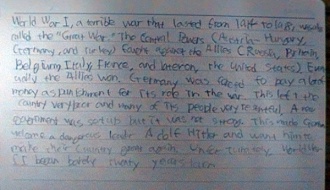 World War I, a terrible war that lasted from 1914 to 1918, was also
called the "Great War." The Central Powers (Austria-Hungary,
Germany, and Turkey) fought against the Allies (Russia, Britain,
Belgium, Italy, France, and later on, the United States).
the Allies won. Germany was forced to pay a lot
money as punishment for its role in the war. This left the
country very poor and many of its people very A new
government was set up but it was not strong. This made
a dangerous leader Adolf Hitler and want him to
make their country great again. World War
II began barely twenty years later.